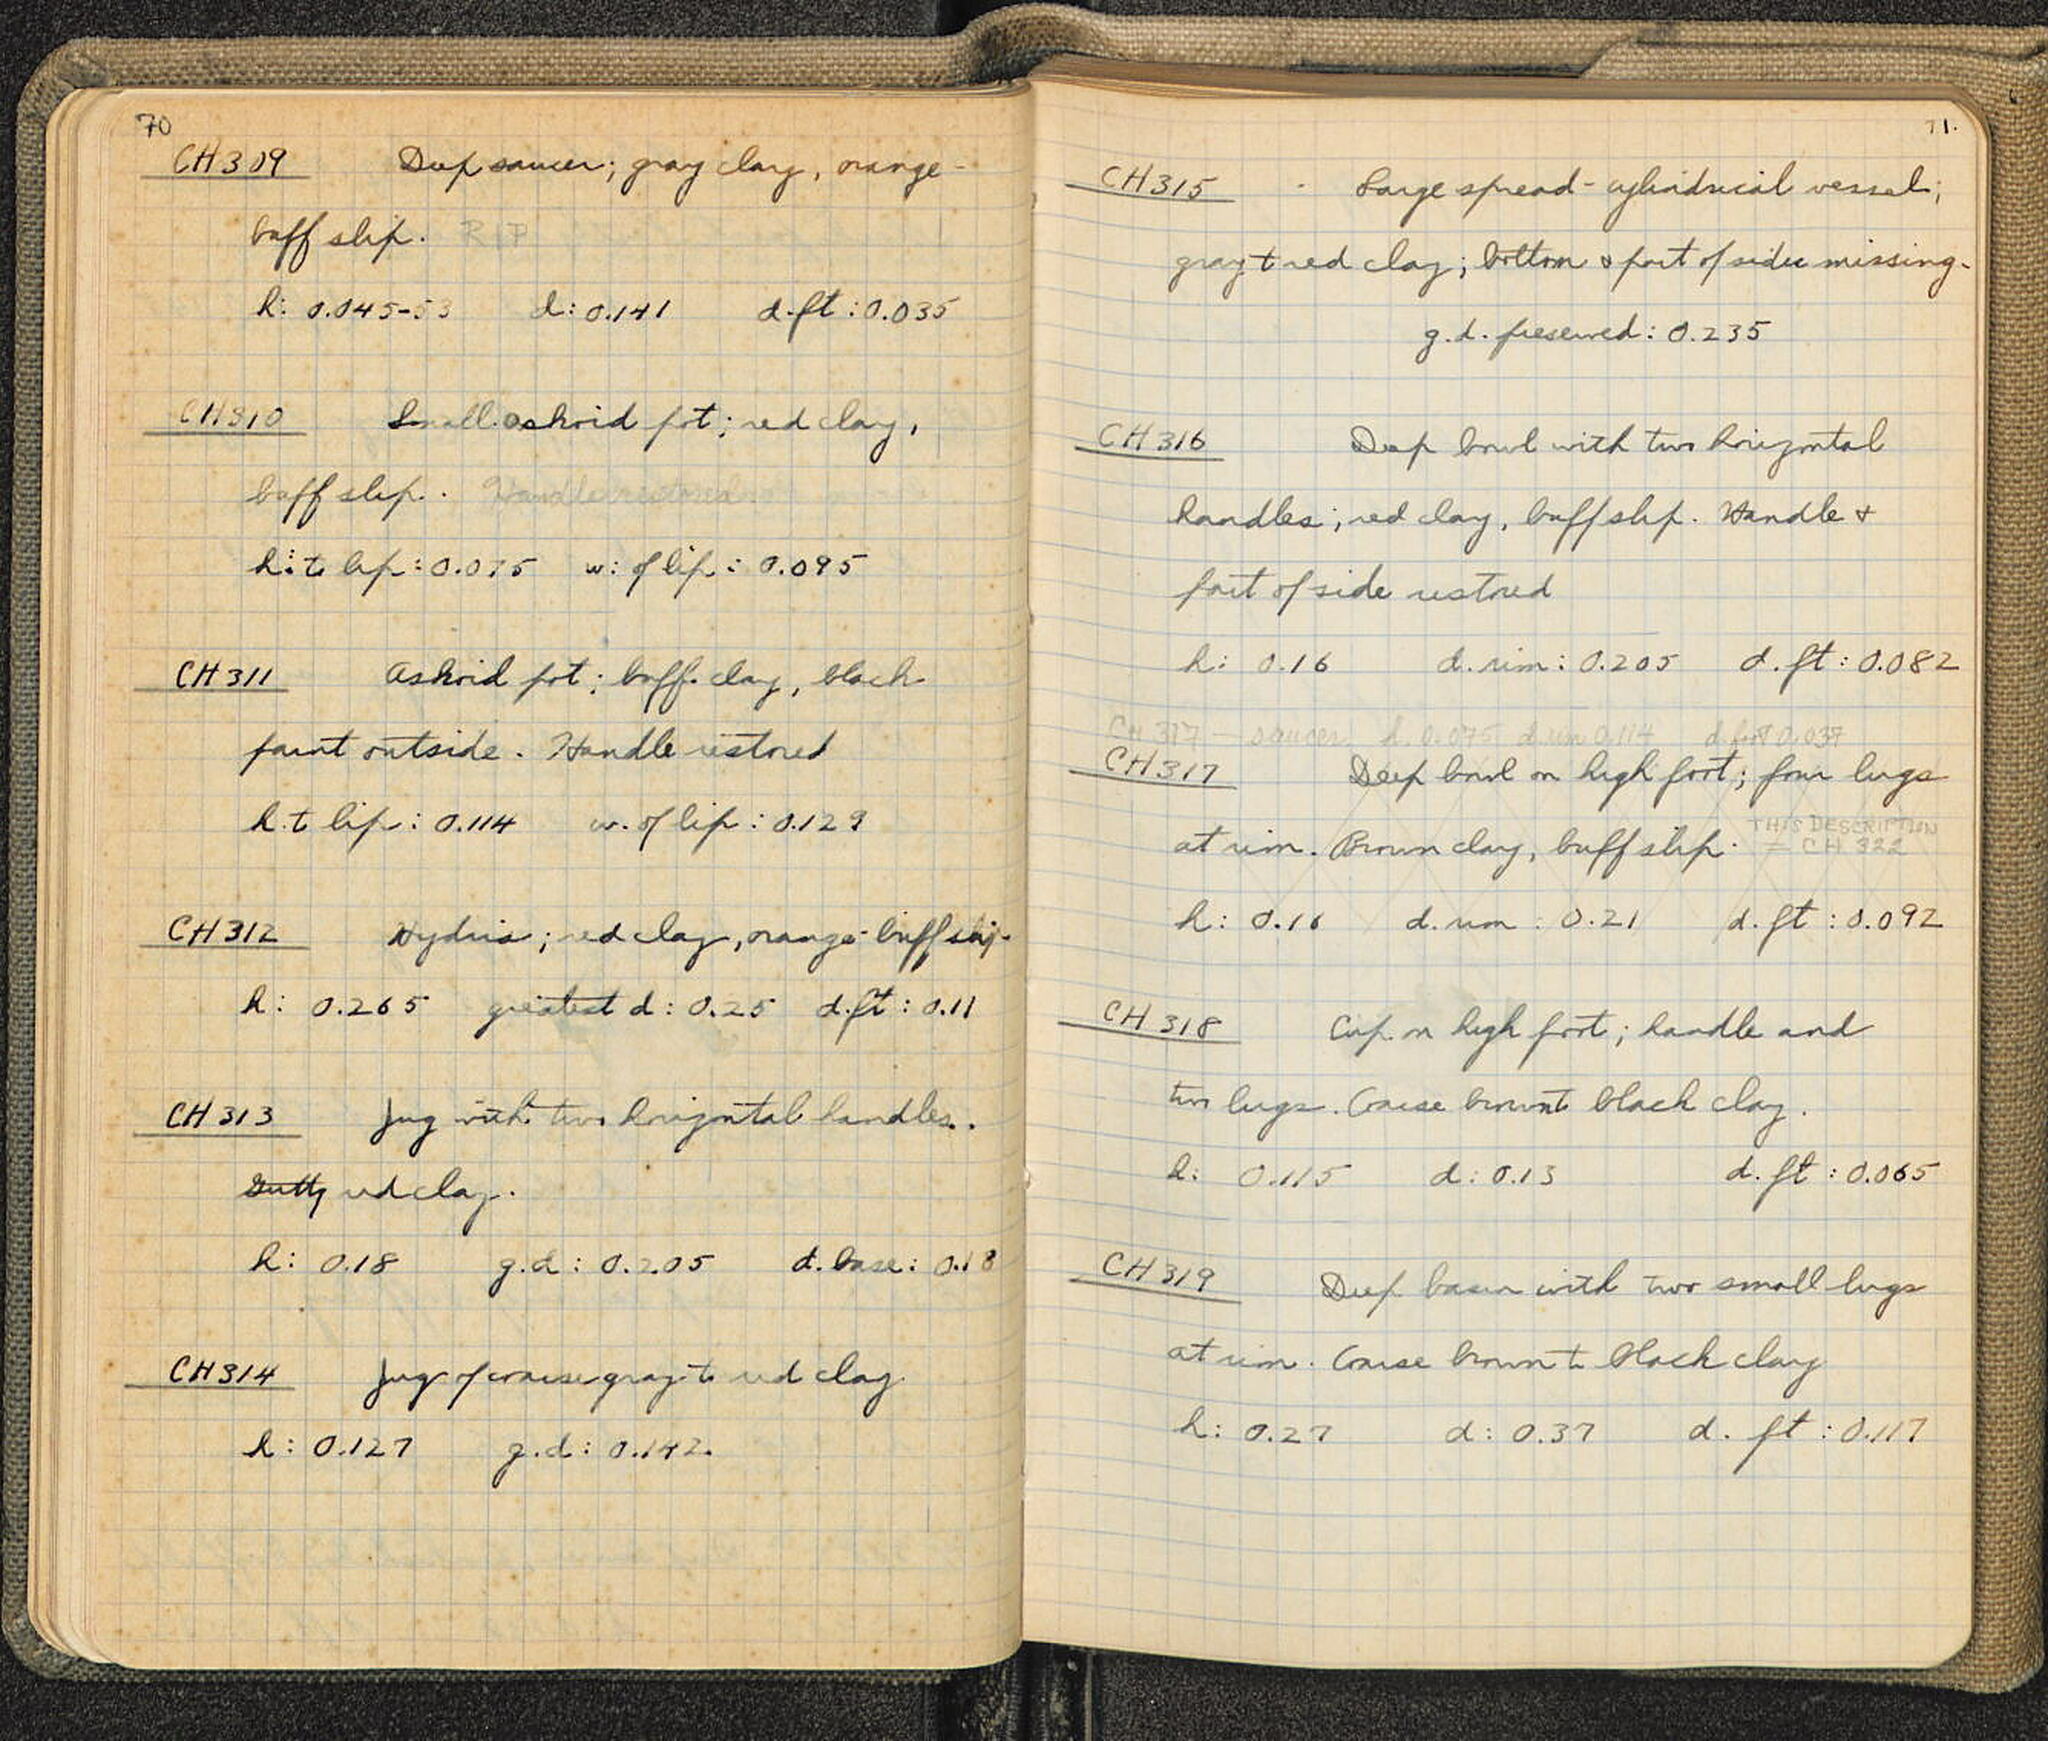 70
CH 309 Deep saucer; gray clay, orange-
buff slip. RIP
h: 0.045-53 d: 0.141 d.ft: 0.035
CH 310 Small askoid pot; red clay,
buff slip. Handle restored
h. to lip: 0.075 w. of lip: 0.095
CH 311 Askoid pot; buff clay, black
paint outside. Handle restored
h. to lip: 0.114 w. of lip: 0.129
CH 312 Hydria; red clay, orange-buff slip.
h: 0.265 greatest d: 0.25 d.ft: 0.11
CH 313 Jug with two horizontal handles.
Gritty red clay.
h: 0.18 g.d: 0.205 d. base: 0.13
CH 314 Jug of coarse gray to red clay.
h: 0.127 g.d: 0.142.
71.
CH 315 Large spread-cylindrical vessel;
gray to red clay; bottom & part of sides missing.
g.d. preserved: 0.235
CH 316 Deep bowl with two horizontal
handles; red clay, buff slip. Handle &
part of side restored
h: 0.16 d. rim: 0.205 d. ft: 0.082
CH 317 — saucer h. 0.075 d. rim 0.114 d. foot 0.037
CH 317 Deep bowl on high foot; four lugs
at rim. Brown clay, buff slip. THIS DESCRIPTION
= CH 322
h: 0.16 d. rim: 0.21 d. ft: 0.092
CH 318 Cup on high foot; handle and
two lugs. Coarse brown to black clay.
h: 0.115 d: 0.13 d. ft: 0.065
CH 319 Deep basin with two small lugs
at rim. Coarse brown to black clay
h: 0.27 d: 0.37 d. ft: 0.117